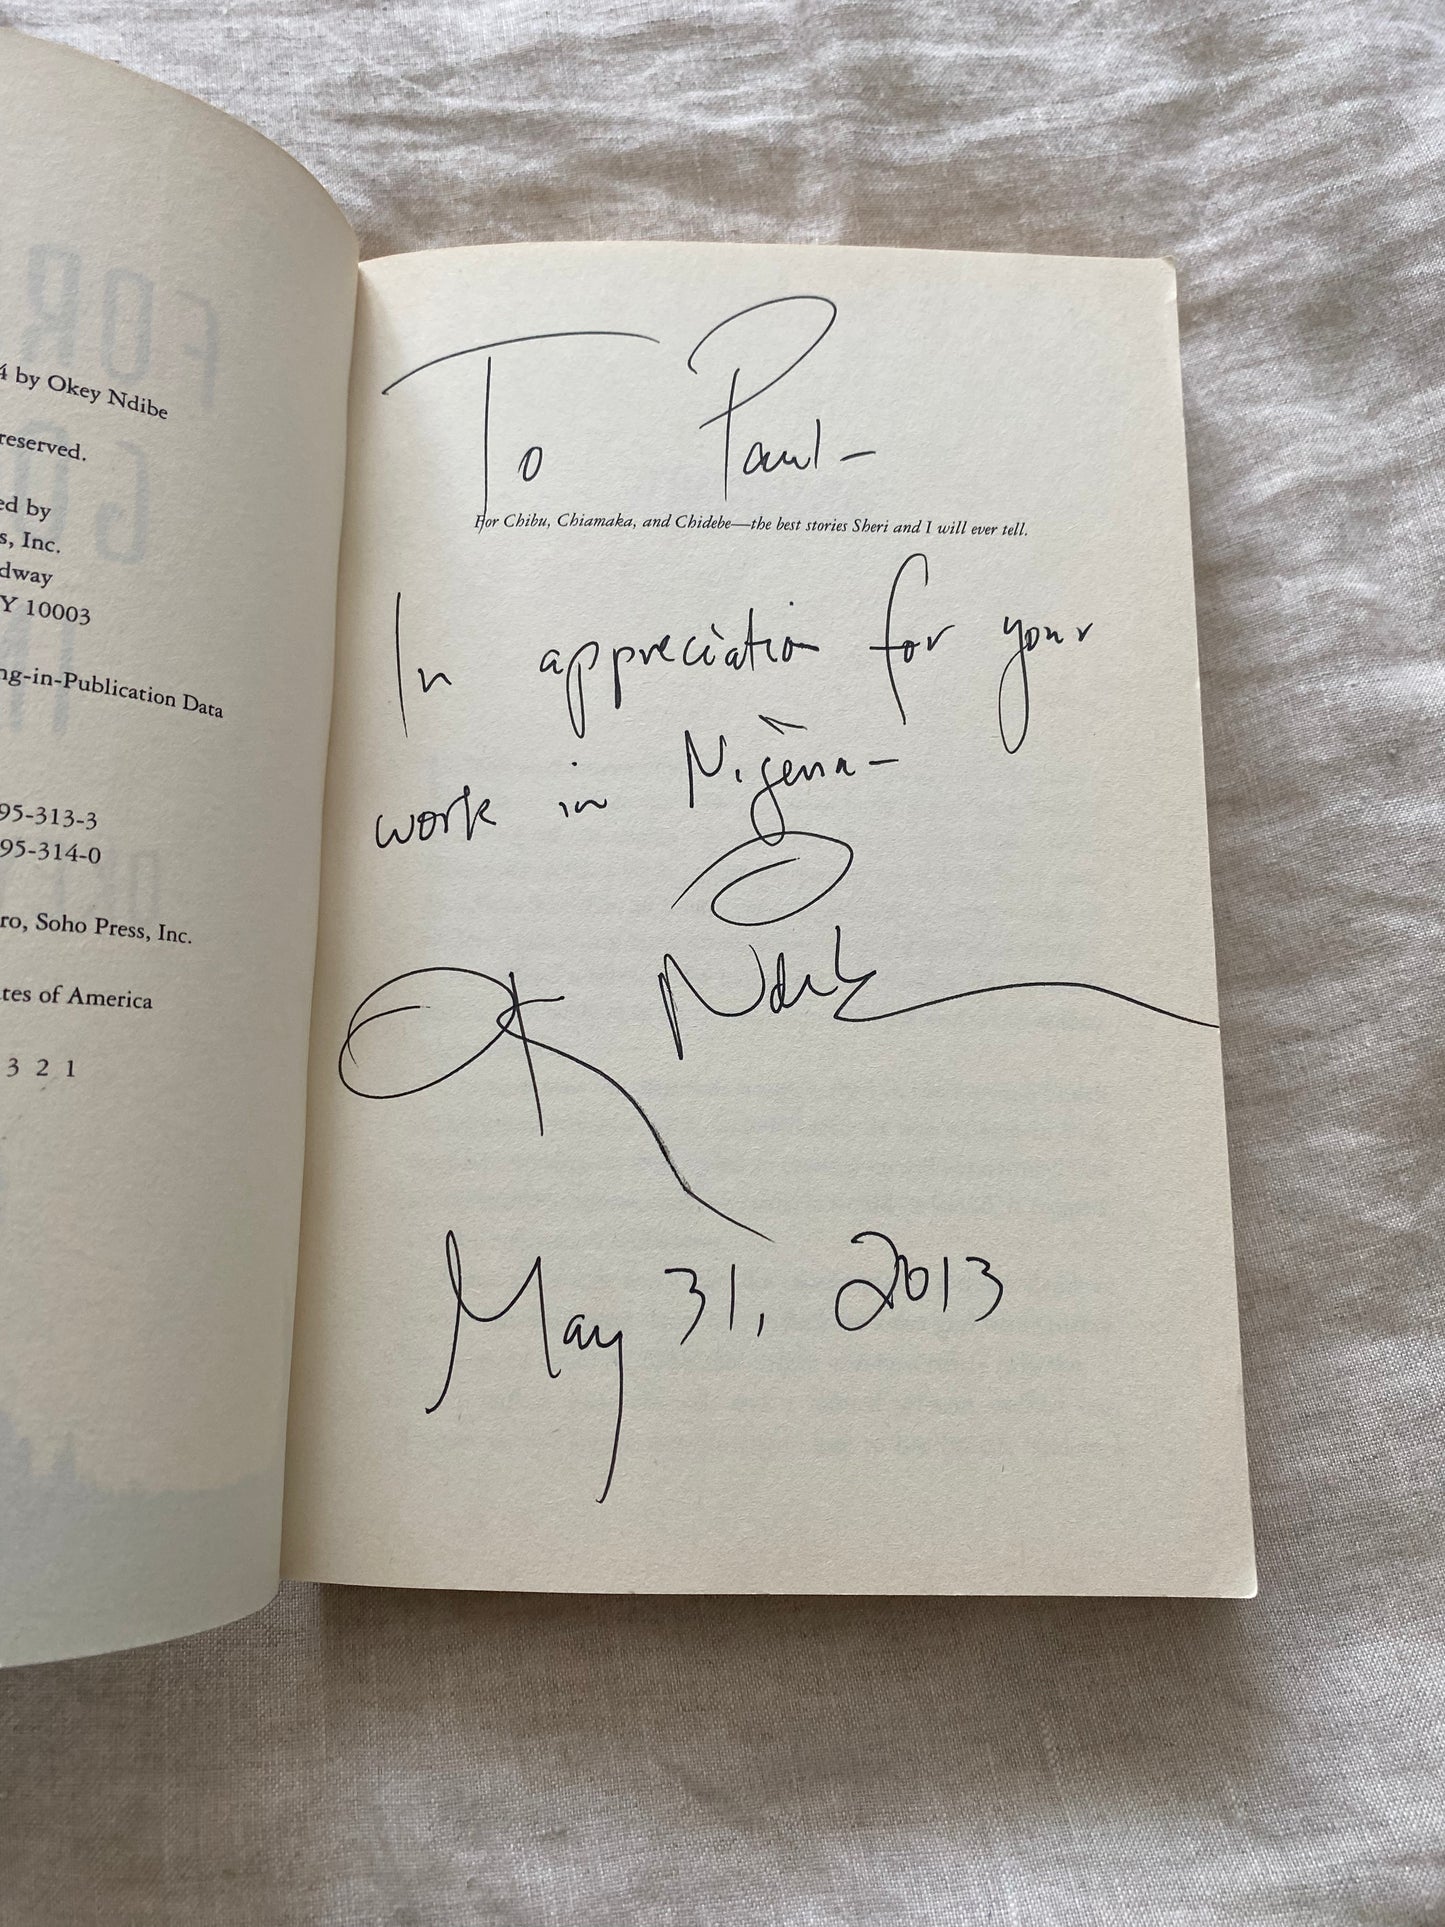 4 by Okey Ndibe
reserved.
ed by
s, Inc.
dway
Y 10003
ng-in-Publication Data
95-313-3
95-314-0
ro, Soho Press, Inc.
tes of America
3 2 1
To Paul-
For Chibu, Chiamaka, and Chidebe—the best stories Sheri and I will ever tell.
In appreciation for your
work in Nigeria-
Ndibe
May 31, 2013